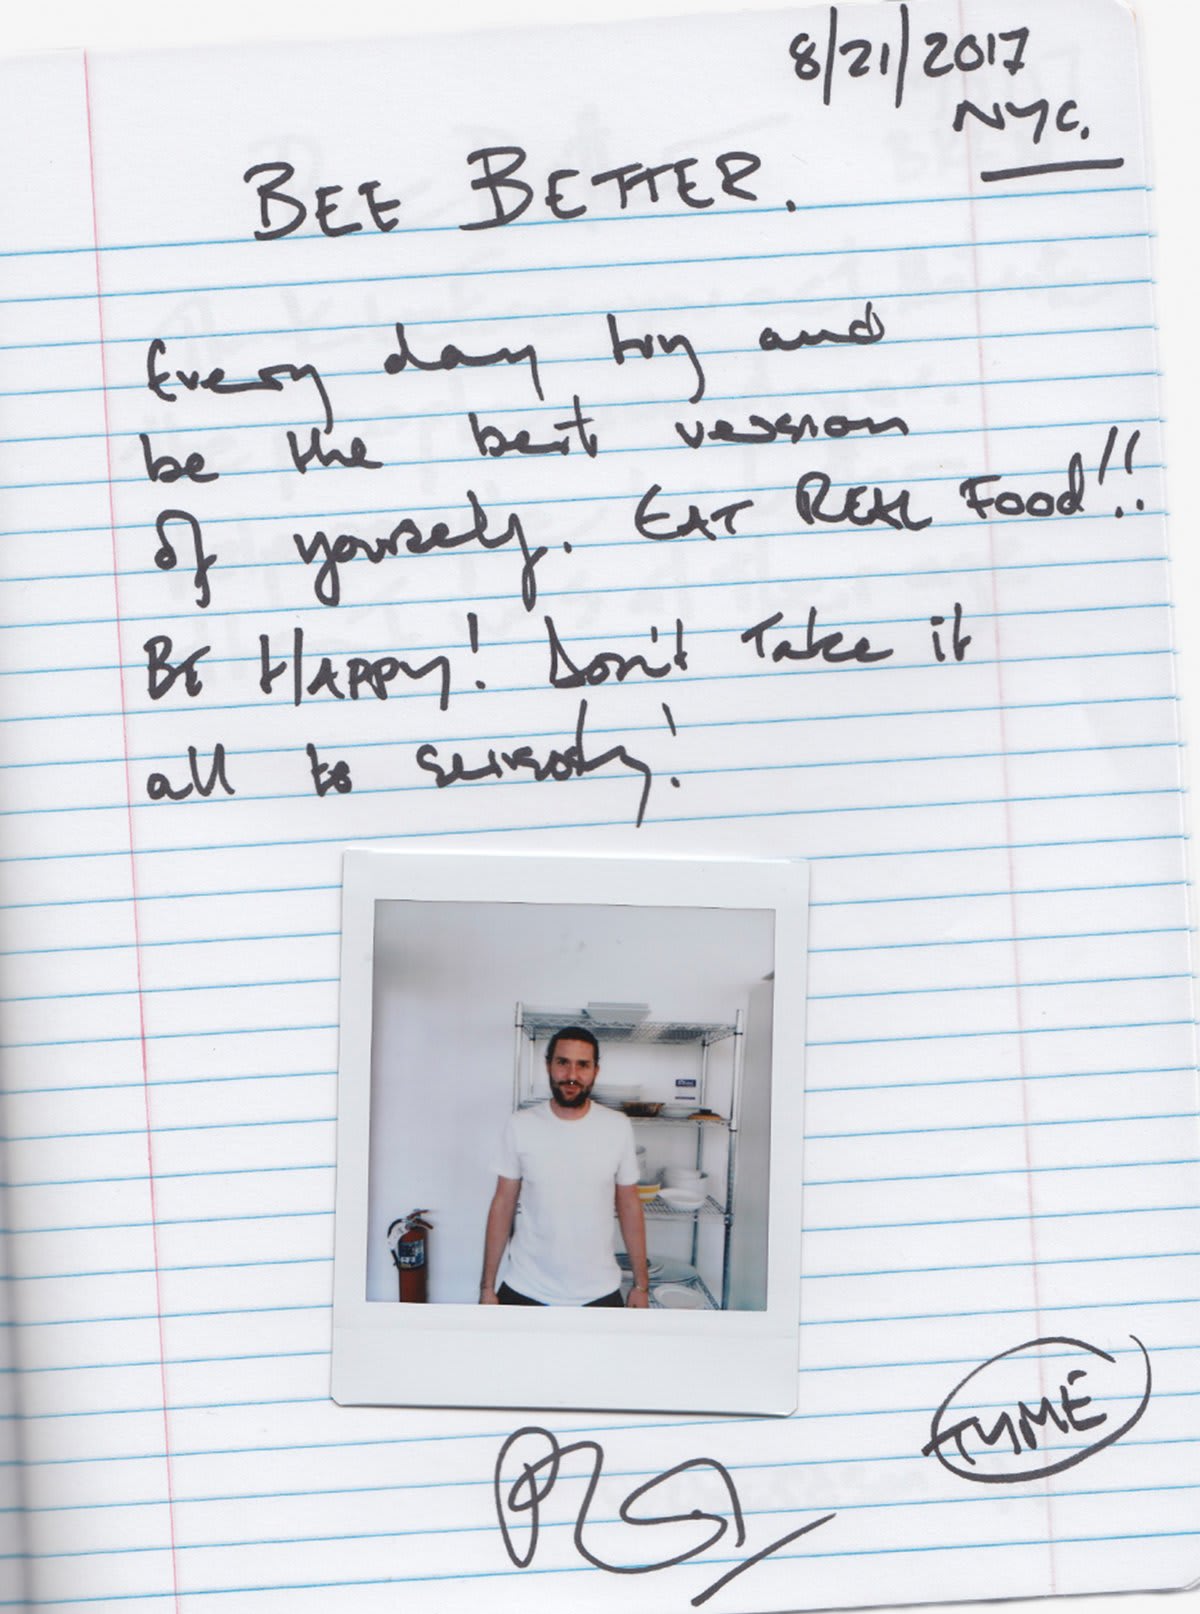 8/21/2017
NYC.
BEE BETTER.
Every day try and
be the best version
of yourself. EAT REAL FOOD!!
BE HAPPY! Don't Take it
all to seirsoly!
TYME